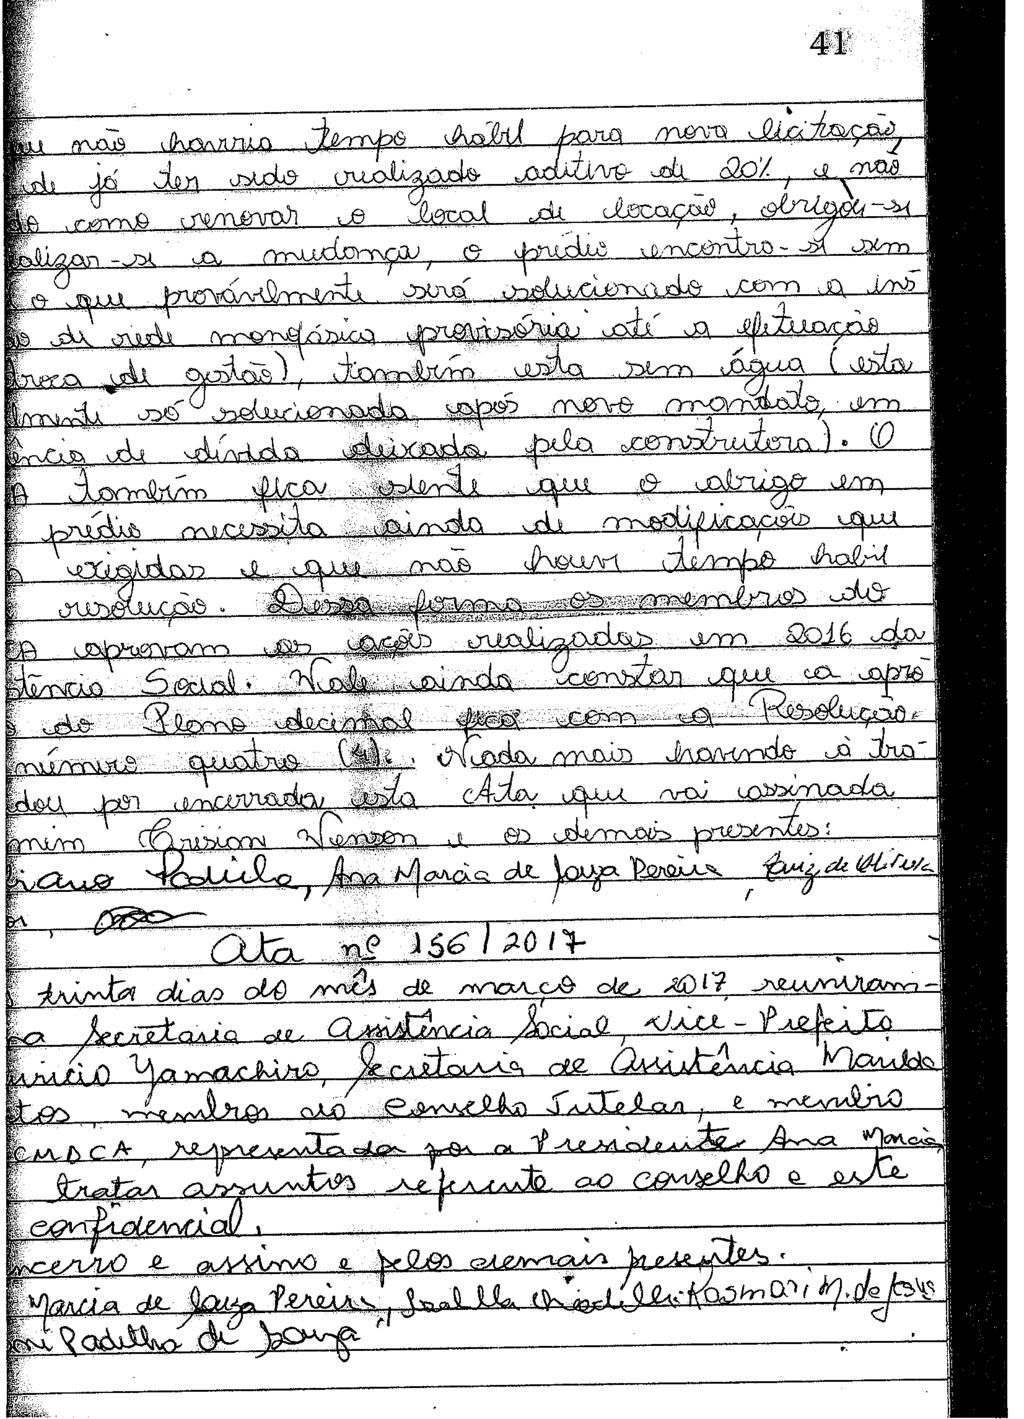 41
não havria tempo hábil para nova licitação,
de já ter sido realizado aditivo de 20%, e não
do como renovar o local de locação, obrigou-se
alizar-se a mudança, o prédio encontra-se sem
o que provávelmente será solucionado com a ins
o de rede monofásica provisória até a efetuação
troca de gestão), também esta sem água (esta
lmente só solucionada após novo mandato, em
ência de dívida deixada pela construtora). O
A também fica ciente que o abrigo em
prédio necessita ainda de modificações que
exigidas e que não houve tempo habil
resolução. Dessa forma os membros do
CA aprovam as ações realizadas em 2016 da
stência Social. Vale ainda constar que a apro
do Plano decimal fica com a Resolução.
número quatro (4). Nada mais havendo à tra-
dou por encerrada esta Ata que vai assinada
mim e os demais presentes:
iano Padilha, Ana Marcia de Souza Pereira, Luiz de Oliveira
Ata nº 156/2017
trinta dias do mês de março de 2017 reuniram-
a Secretaria de Assistência Social, Vice-Prefeito
uricio Yamachiro, Secretaria de Assistência Marilda
tos, membros do Conselho Tutelar, e membro
CMDCA, representada por a Presidente Ana Marcia,
tratar assuntos referente ao conselho e este
confidencial.
ncerro e assino e pelos demais presentes.
Marcia de Souza Pereira, Rosmari M. de Jesus
ni Padilha de Souza